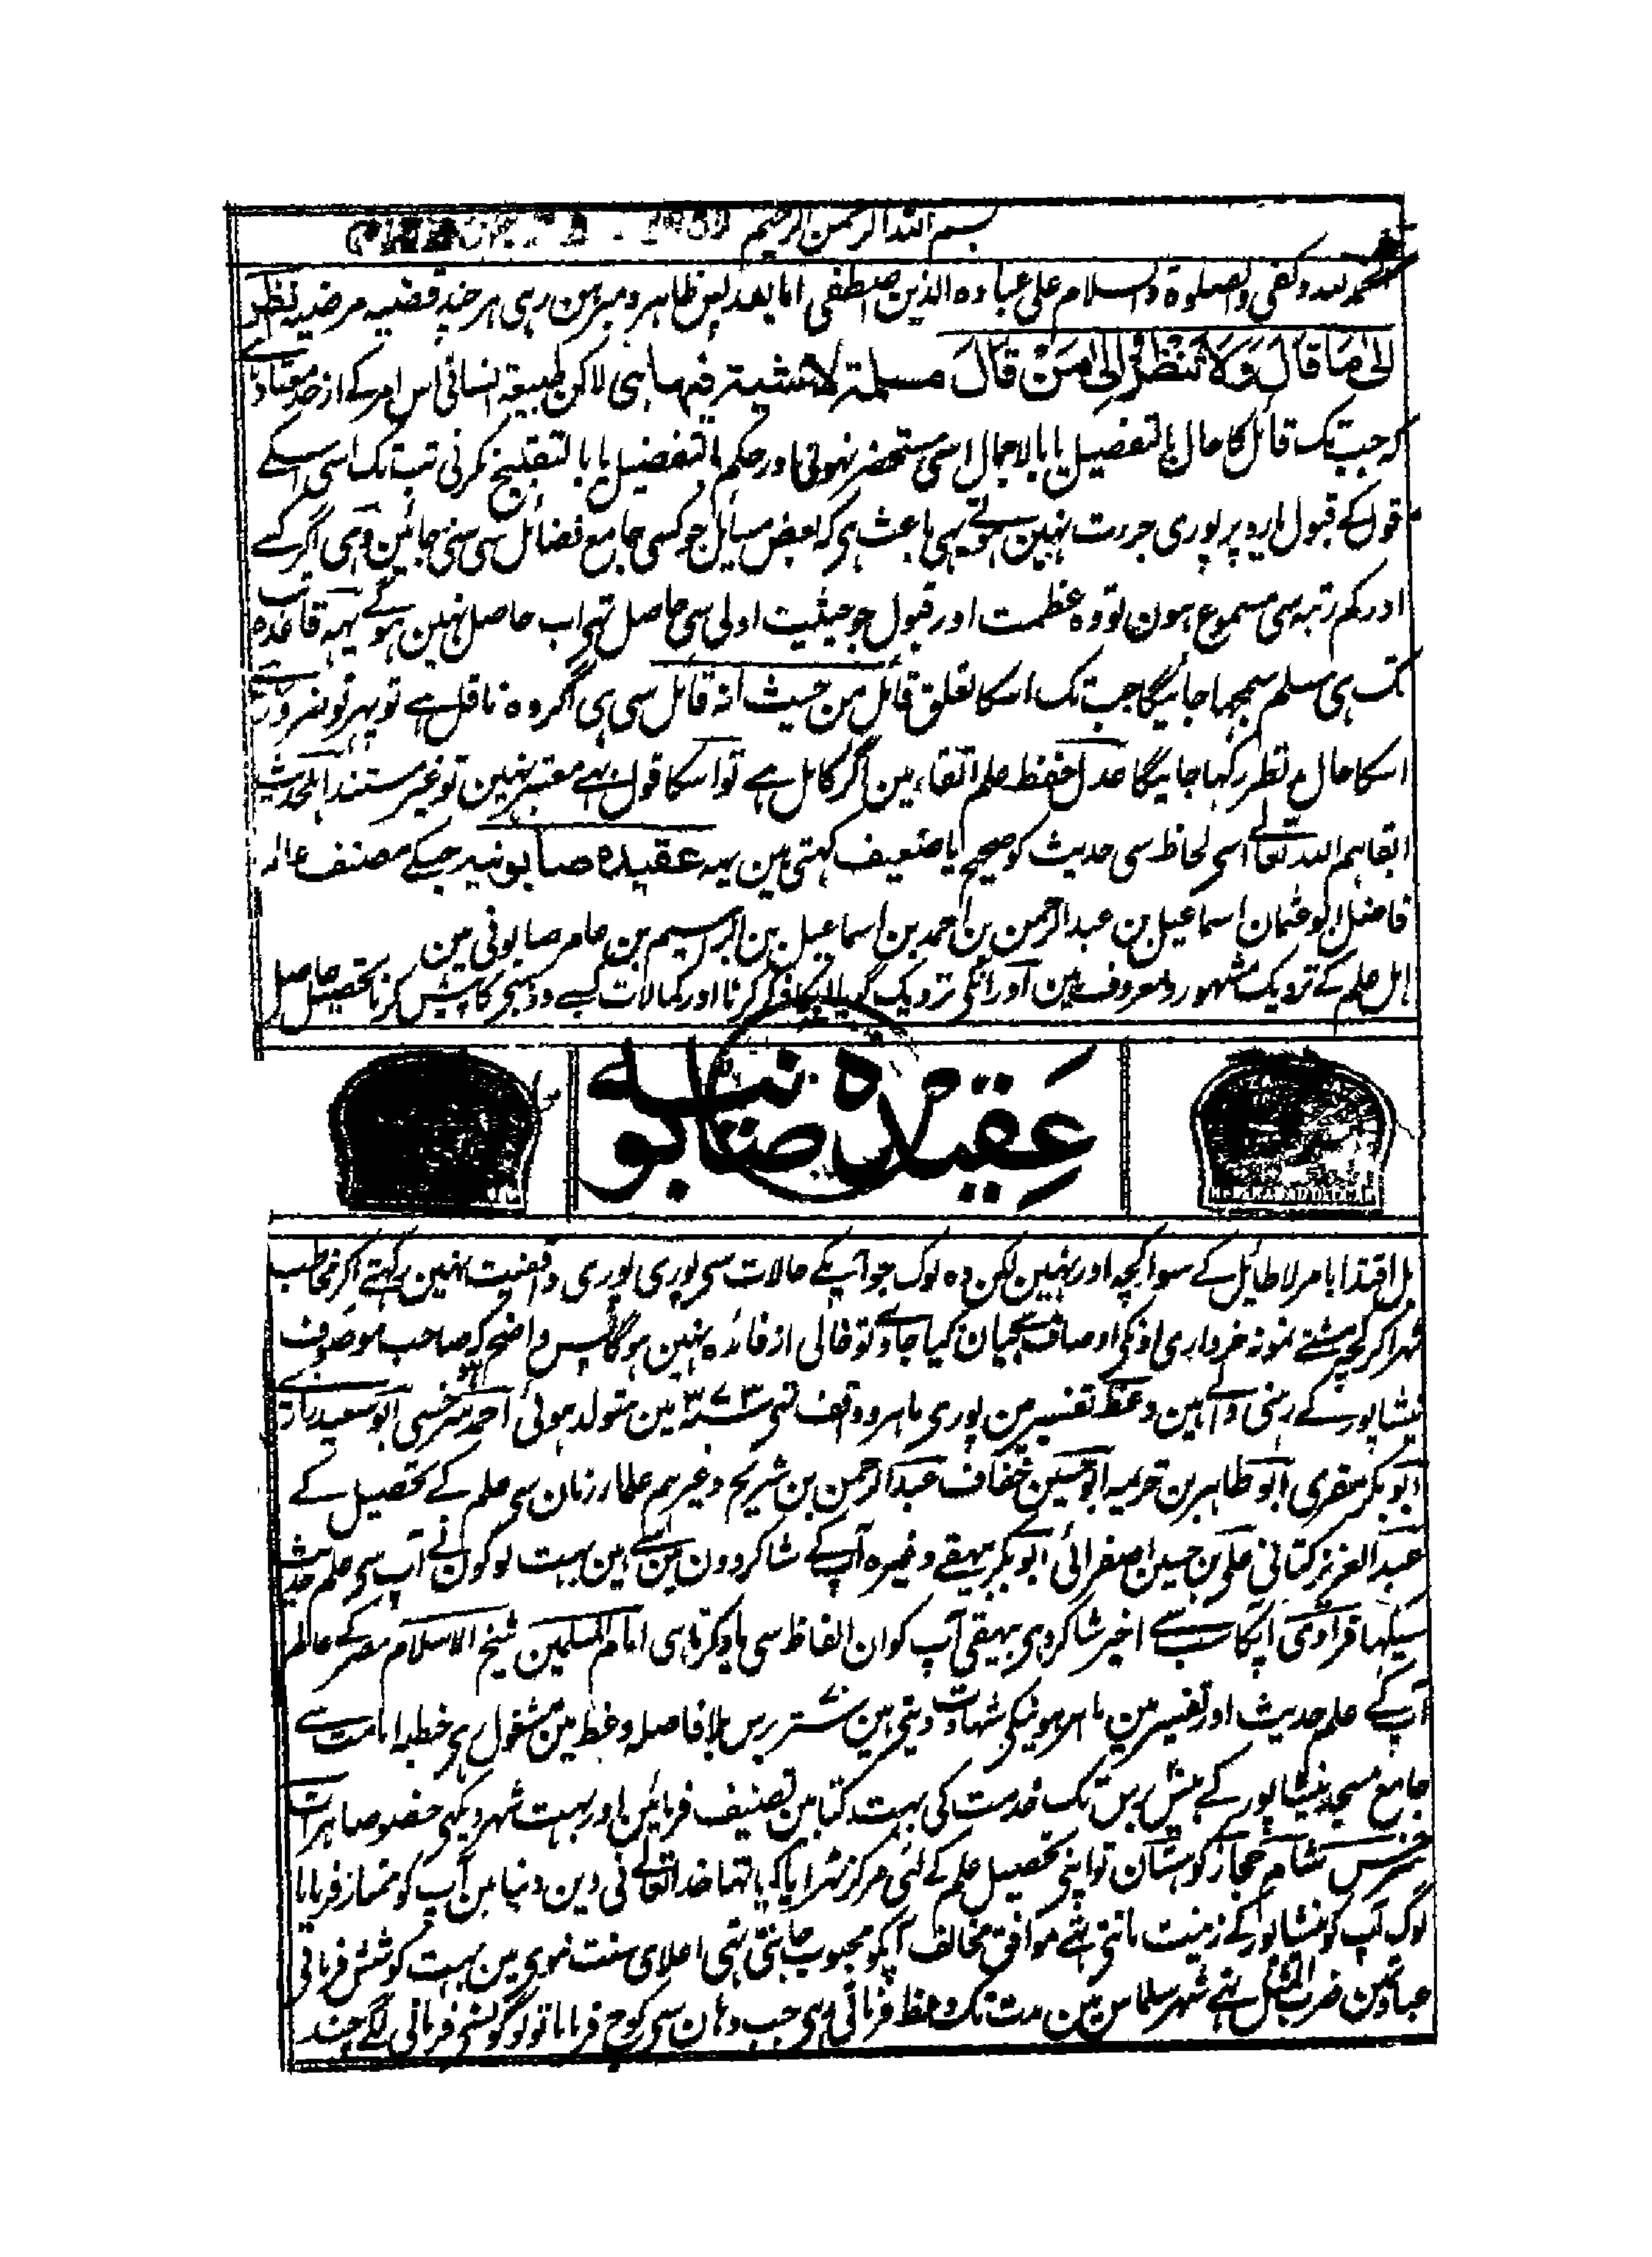 بسم اللہ الرحمن الرحیم
الحمد للہ وکفی والصلوۃ والسلام علی عبادہ الذین اصطفی اما بعد پس ظاہر و مبرہن رہی ہر چند قضیہ مرضیہ انظر
الی ما قال ولا تنظر الی من قال مسلمۃ لا شیۃ فیہا ہی لاکن طبیعۃ انسانی اس امر کے از حد معتاد ہے
کہ جب تک قائل کا حال بالتفصیل یا بالاجمال اسی مستحضر نہوئی اور حکم بالتفضیل یا بالتقبیح نکرنی تب تک اسی اسکے
قول کے قبول یا رد پر پوری جرءت نہین ہوتے یہی باعث ہی کہ بعض مسایل جو کسی جامع فضائل سی سنی جائین وہی اگر کسے
اور کم رتبہ سی مسموع ہون تو وہ عظمت اور قبول جو حیثیت اولی سی حاصل تہی اب حاصل نہین ہوگے یہہ قاعدہ تب
تک ہی مسلم سمجہا جائیگا جب تک اسکا تعلق قائل من حیث انہ قائل سی ہی اگر وہ ناقل ہے تو پہر تو ضرور
اسکا حال مد نظر رکہا جائیگا عدل حفظ علم اتقاء مین اگر کامل ہے تو اسکا قول بہے معتبر نہین تو غیر مستند اہلحدیث
ابقاہم اللہ تعالے اسی لحاظ سی حدیث کو صحیح یا ضعیف کہتی ہین یہہ عقیدہ صابونیہ جسکے مصنف عالم
فاضل ابو عثمان اسماعیل بن عبد الرحمن بن احمد بن اسماعیل بن ابراہیم بن عامر صابونی ہین
اہل علم کے نزدیک مشہور و معروف ہین اور انکی نزدیک گویا آپکا ذکر کرنا اور کمالات کسبے و وہبی کا پیش کرنا تحصیل حاصل
عقیدہ صابونیہ
بل اقتدا بامر لاطائل کے سوا کچہ اور نہین لکن وہ لوگ جو آپکے حالات سی پوری پوری واقفیت نہین رکہتے اگر مخاطب
ٹہرا کر کچہ مشتے نمونہ خرواری اونکی اوصاف سے بیان کیا جاوے تو خالی از فائدہ نہین ہوگا پس واضح کہ صاحب موصوف
نیشاپور کے رہنی والے ہین وعظ تفسیر من پوری ماہر و واقف تہی ۳۷۳ مین متولد ہوئی احمد سرخسی ابو سعید رازے
ابو بکر مقری ابو طاہر بن خزیمہ ابو حسین خفاف عبد الرحمن بن شریح وغیرہم علماء زمان سی علم کے تحصیل کے
عبد العزیز کتانی علی بن حسین اصفرائی ابو بکر بیہقے وغیرہ آپ کے شاکردون مین سے ہین بہت لوگون نے آپ سی علم حدیث
سیکہا فراوی آپکا سب سے اخیر شاکرد ہی بیہقی آپ کو ان الفاظ سی یاد کرتا ہی امام المسلمین شیخ الاسلام مصر کے عالم
آپ کے علم حدیث اور تفسیر مین ماہر ہونیکی شہادت دیتی ہین ستر برس بلا فاصلہ وعظ مین مشغول رہی خطبہ امامت سے
جامع مسجد نیشاپور کے بیس برس تک خدمت کی بہت کتابین تصنیف فرمائین اور بہت شہر دیکہی خصوصا ہرات
سرخس شام حجاز کوہستان تو اپنی تحصیل علم کے لئی مرکز ٹہرایا کیا تہا خدا تعالے نی دین دنیا مین آپ کو ممتاز فرمایا
لوگ آپ کو نیشاپور کے زینت مانتی تہے موافق مخالف آپکو محبوب جانتی تہی اعلای سنت نبوی مین بہت کوشش فرماتی
عبادت مین ضرب المثل بنے شہر سلماس مین مدت تک وعظ فرماتی رہی جب وہان سی کوچ فرمایا تو لوگونسی فرمانی لگے چند